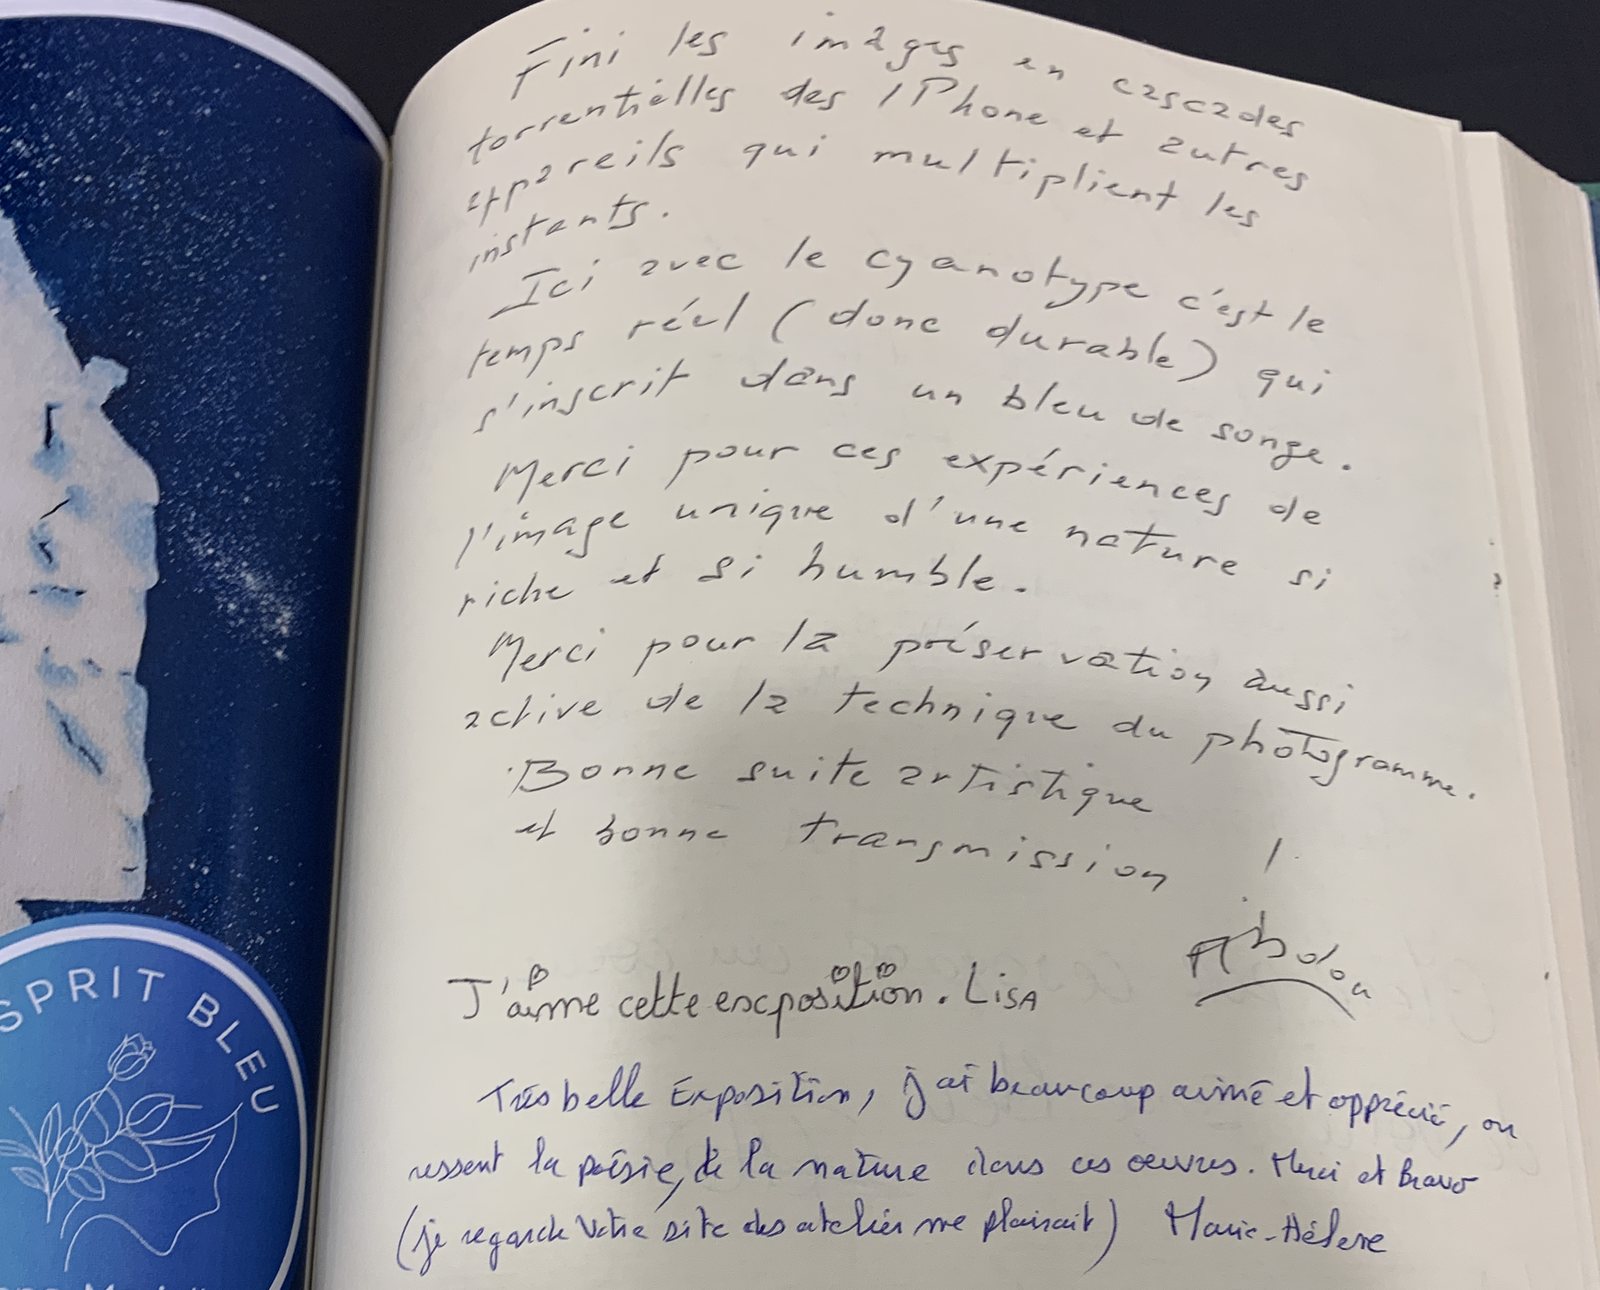 Fini les images en cascades
torrentielles des IPhone et autres
appareils qui multiplient les
instants.
Ici avec le cyanotype c'est le
temps réel (donc durable) qui
s'inscrit dans un bleu de songe.
Merci pour ces expériences de
l'image unique d'une nature si
riche et si humble.
Merci pour la préservation aussi
active de la technique du photogramme.
Bonne suite artistique
et bonne transmission !
J'aime cette excposition. LISA
Très belle Exposition, j'ai beaucoup aimé et apprécié, on
ressent la poésie, de la nature dans ces oeuvres. Merci et Bravo
(je regarde votre site des atelier me plairait) Marie-Hélène
SPRIT BLEU